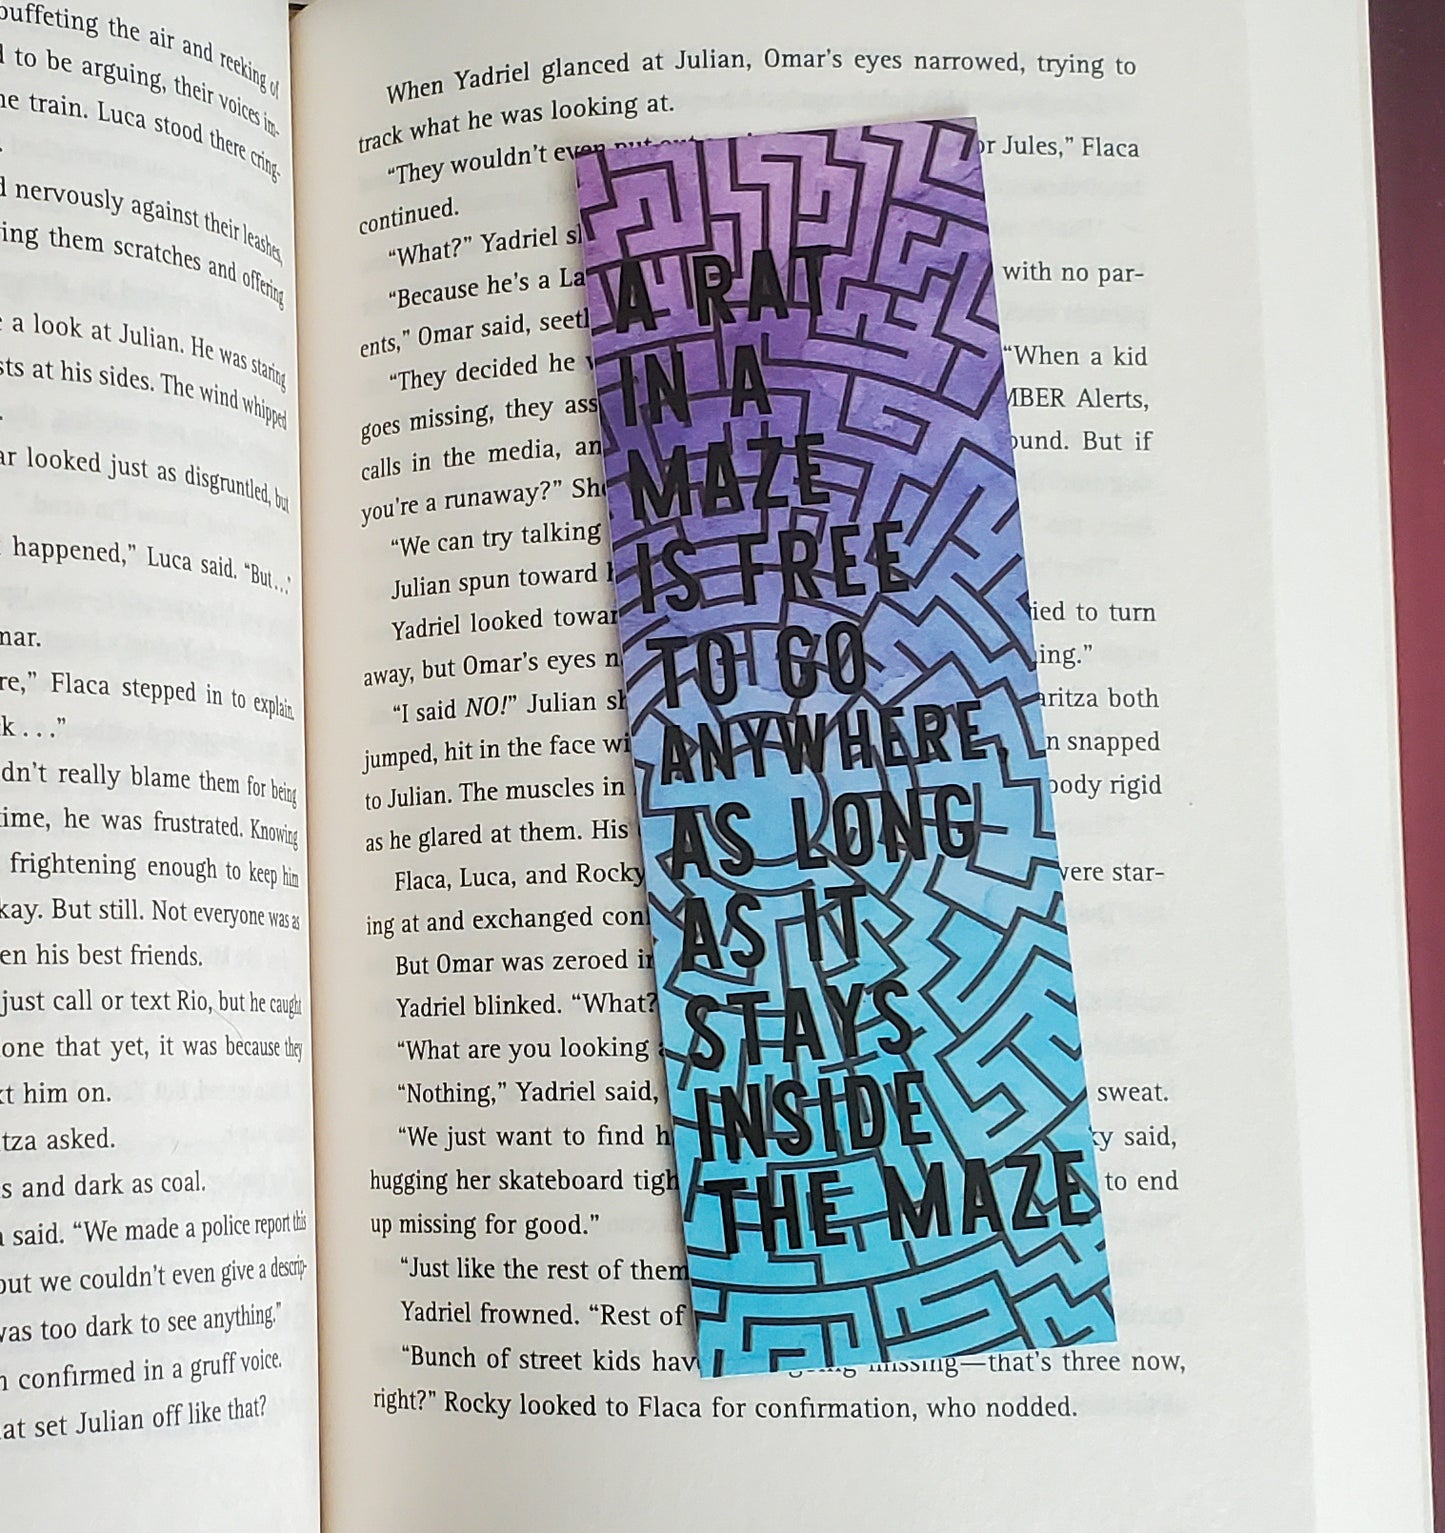 buffeting the air and reeking of
to be arguing, their voices im-
train. Luca stood there cring-
nervously against their leashes,
ing them scratches and offering
a look at Julian. He was staring
sts at his sides. The wind whipped
ar looked just as disgruntled, but
happened,” Luca said. “But...”
mar.
re,” Flaca stepped in to explain.
k . . .”
dn’t really blame them for being
ime, he was frustrated. Knowing
frightening enough to keep him
kay. But still. Not everyone was as
en his best friends.
just call or text Rio, but he caught
one that yet, it was because they
xt him on.
tza asked.
s and dark as coal.
said. “We made a police report this
out we couldn’t even give a descrip-
was too dark to see anything.”
confirmed in a gruff voice.
at set Julian off like that?
When Yadriel glanced at Julian, Omar’s eyes narrowed, trying to
track what he was looking at.
“They wouldn’t even put out or Jules,” Flaca
continued.
“What?” Yadriel
“Because he’s a La with no par-
ents,” Omar said,
“They decided he “When a kid
goes missing, they ass MBER Alerts,
calls in the media, an ound. But if
you’re a runaway?”
“We can try talking
Julian spun toward
Yadriel looked towar ied to turn
away, but Omar’s eyes ing.”
“I said NO!” Julian aritza both
jumped, hit in the face wi n snapped
to Julian. The muscles in body rigid
as he glared at them. His
Flaca, Luca, and Rocky were star-
ing at and exchanged con
But Omar was zeroed in
Yadriel blinked. “What?
“What are you looking
“Nothing,” Yadriel said, sweat.
“We just want to find ky said,
hugging her skateboard tigh to end
up missing for good.”
“Just like the rest of them
Yadriel frowned. “Rest of
“Bunch of street kids hav missing—that’s three now,
right?” Rocky looked to Flaca for confirmation, who nodded.
A RAT
IN A
MAZE
IS FREE
TO GO
ANYWHERE,
AS LONG
AS IT
STAYS
INSIDE
THE MAZE